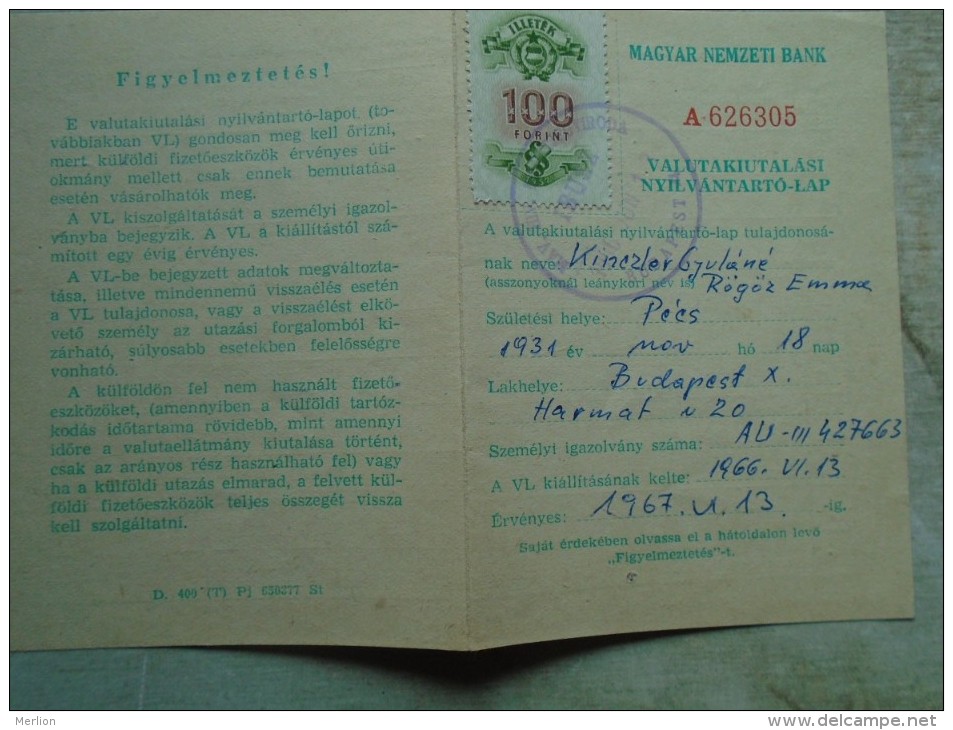 Figyelmeztetés!
E valutakiutalási nyilvántartó-lapot. (to-
vábbiakban VL) gondosan meg kell őrizni,
mert külföldi fizetőeszközök érvényes úti-
okmány mellett csak ennek bemutatása
esetén vásárolhatók meg.
A VL kiszolgáltatását a személyi igazol-
ványba bejegyzik. A VL a kiállítástól szá-
mított egy évig érvényes.
A VL-be bejegyzett adatok megváltozta-
tása, illetve mindennemű visszaélés esetén
a VL tulajdonosa, vagy a visszaélést elkö-
vető személy az utazási forgalomból ki-
zárható, súlyosabb esetekben felelősségre
vonható.
A külföldön fel nem használt fizető-
eszközöket, (amennyiben a külföldi tartóz-
kodás időtartama rövidebb, mint amennyi
időre a valutaellátmány kiutalása történt,
csak az arányos rész használható fel) vagy
ha a külföldi utazás elmarad, a felvett kül-
földi fizetőeszközök teljes összegét vissza
kell szolgáltatni.
D. 400 (T) Pj 650377 St
ILLETÉK
100
FORINT
MAGYAR NEMZETI BANK
A 626305
VALUTAKIUTALÁSI
NYILVÁNTARTÓ-LAP
A valutakiutalási nyilvántartó-lap tulajdonosá-
nak neve: Kinczler Gyuláné
(asszonyoknál leánykori név is) Rögöz Emma
Születési helye: Pécs
1931 év nov hó 18 nap
Lakhelye: Budapest X.
Harmat u 20
Személyi igazolvány száma: AU-III 427663
A VL kiállításának kelte: 1966. VI. 13
Érvényes: 1967. VI. 13. -ig.
Saját érdekében olvassa el a hátoldalon levő
„Figyelmeztetés"-t.
Merlion
http://www.delcampe.net